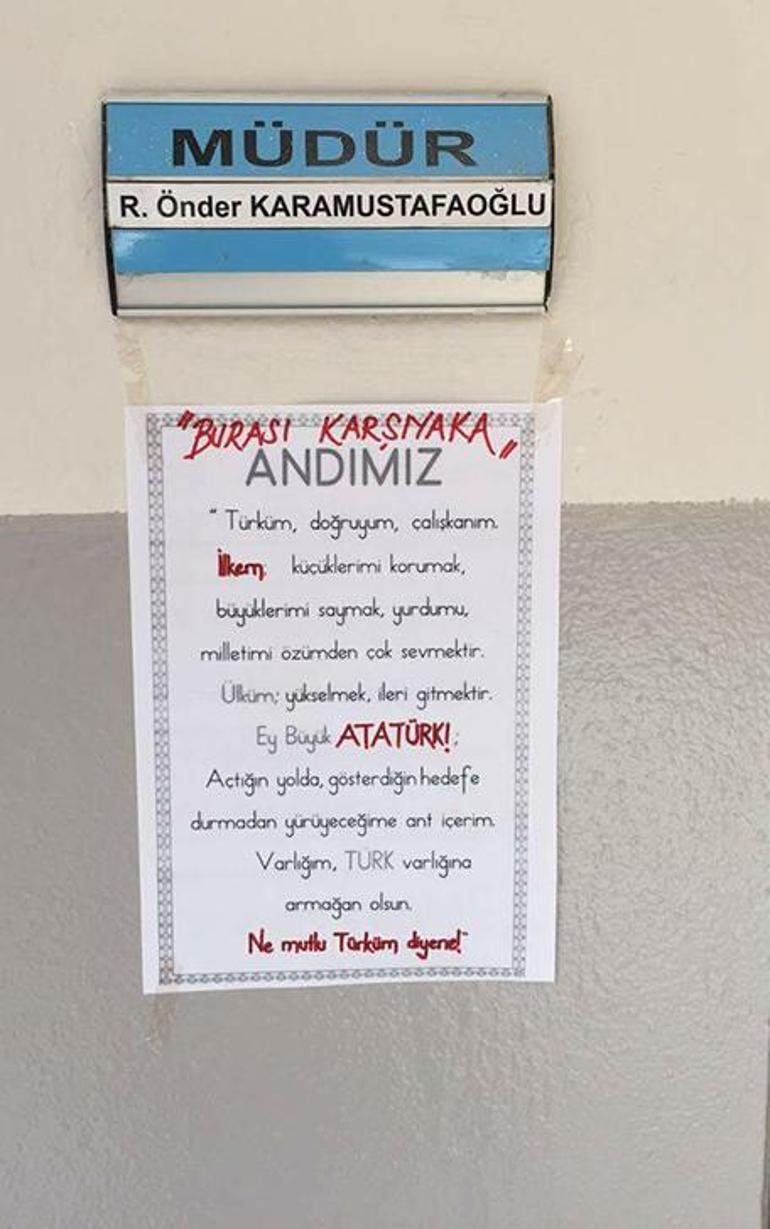 MÜDÜR
R. Önder KARAMUSTAFAOĞLU
"BURASI KARŞIYAKA"
ANDIMIZ
“Türküm, doğruyum, çalışkanım.
İlkem; küçüklerimi korumak,
büyüklerimi saymak, yurdumu,
milletimi özümden çok sevmektir.
Ülküm; yükselmek, ileri gitmektir.
Ey Büyük ATATÜRK!;
Açtığın yolda, gösterdiğin hedefe
durmadan yürüyeceğime ant içerim.
Varlığım, TÜRK varlığına
armağan olsun.
Ne mutlu Türküm diyene!”